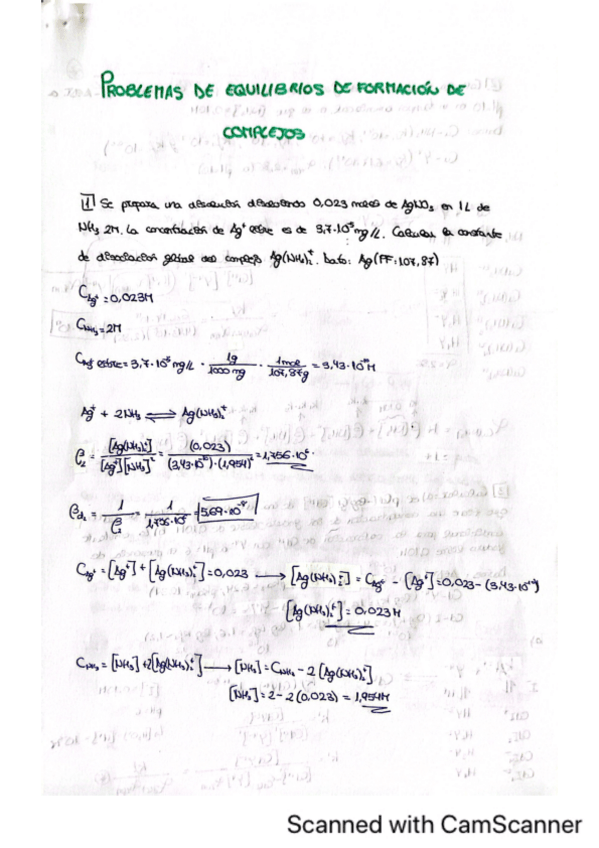 PROBLEMAS DE EQUILIBRIOS DE FORMACIÓN DE
COMPLEJOS
1 Se prepara una disolución disolviendo 0,023 moles de AgNO₃ en 1L de
NH₃ 2M. La concentración de Ag⁺ libre es de 3,7·10⁻⁵ mg/L. Calcular la constante
de disociación global del complejo Ag(NH₃)₂⁺. Dato: Ag(PF: 107,87)
C_Ag⁺ = 0,023M
C_NH₃ = 2M
C_Ag libre = 3,7·10⁻⁵ mg/L · 1g/1000 mg · 1mol/107,87g = 3,43·10⁻¹⁰ M
Ag⁺ + 2NH₃ ⇌ Ag(NH₃)₂⁺
β₂ = [Ag(NH₃)₂⁺]/[Ag⁺][NH₃]² = (0,023)/(3,43·10⁻¹⁰)·(1,954)² = 1,756·10⁷
βd₂ = 1/β₂ = 1/1,756·10⁷ = 5,69·10⁻⁸
C_Ag⁺ = [Ag⁺] + [Ag(NH₃)₂⁺] = 0,023 → [Ag(NH₃)₂⁺] = C_Ag⁺ - [Ag⁺] = 0,023 - (3,43·10⁻¹⁰)
[Ag(NH₃)₂⁺] = 0,023M
C_NH₃ = [NH₃] + 2[Ag(NH₃)₂⁺] → [NH₃] = C_NH₃ - 2[Ag(NH₃)₂⁺]
[NH₃] = 2 - 2(0,023) = 1,954M
Scanned with CamScanner